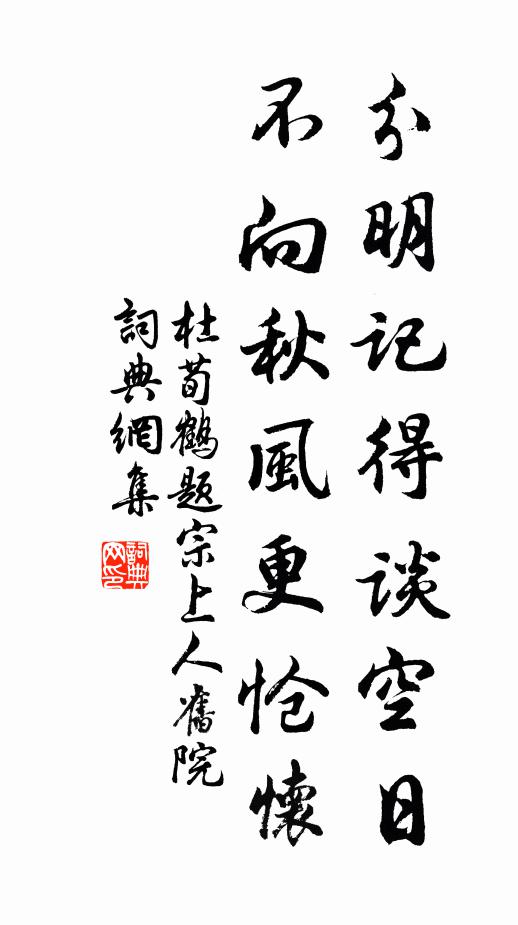 分明记得谈空日
不向秋風更怆懷
杜荀鶴題宗上人舊院
詞典網集
詞典网印